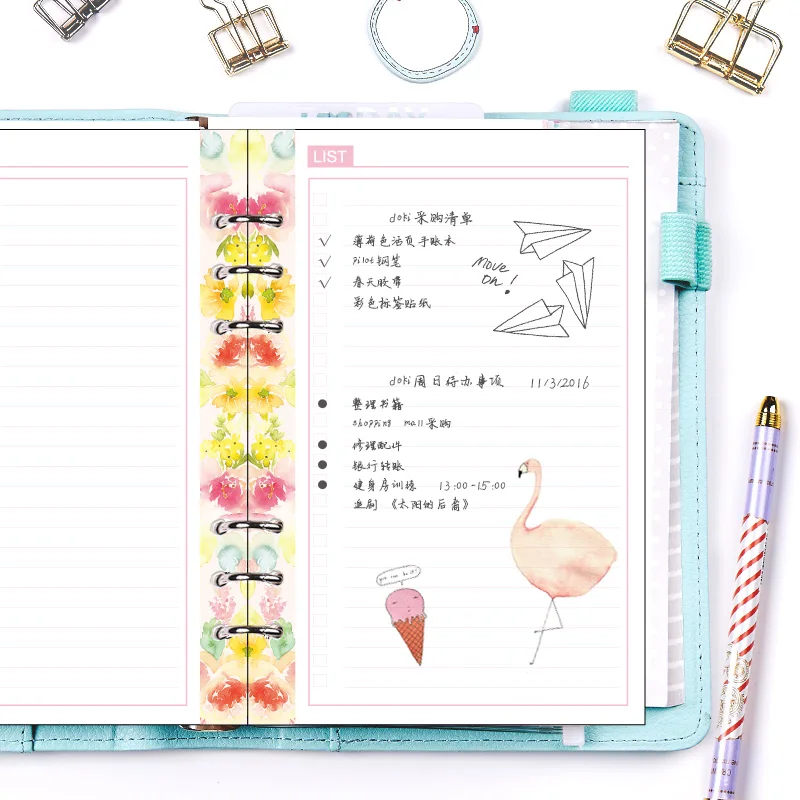 LIST
doki 采购清单
薄荷色活页手账本
pilot 钢笔
春天胶带
彩色标签贴纸
Move
On!
doki 周日待办事项 11/3/2016
整理书籍
shopping mall 采购
修理配件
银行转账
健身房训练 13:00-15:00
追剧 《太阳的后裔》
you can do it!